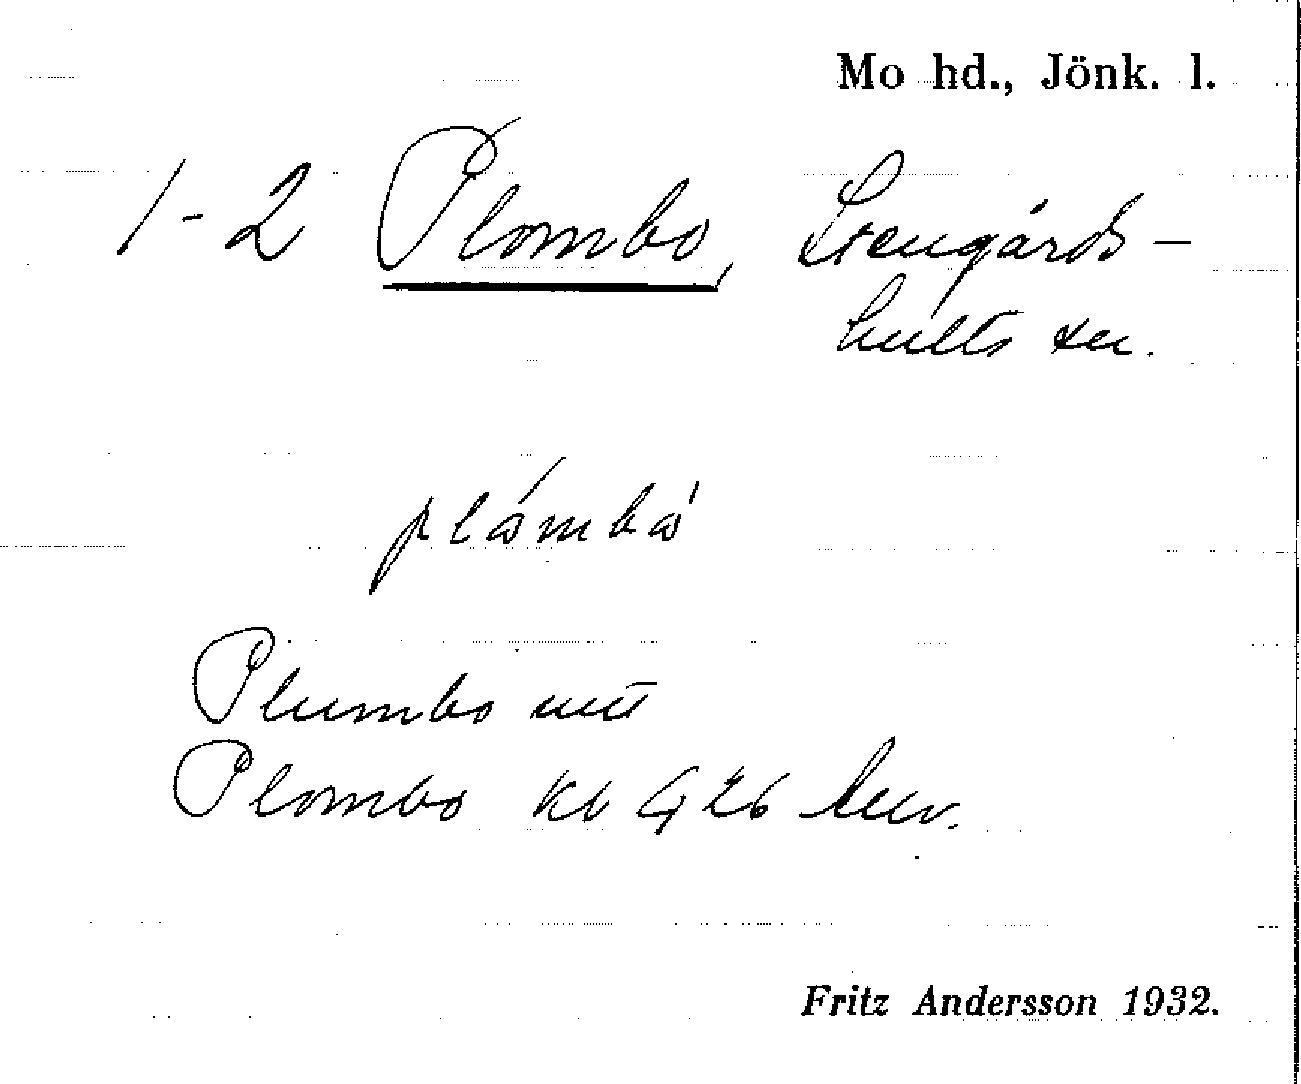 Mo hd., Jönk. l.
1-2 Plombo, Stengårds-
hults sn.
plåmbå
Plumbo
Plombo kb
Fritz Andersson 1932.